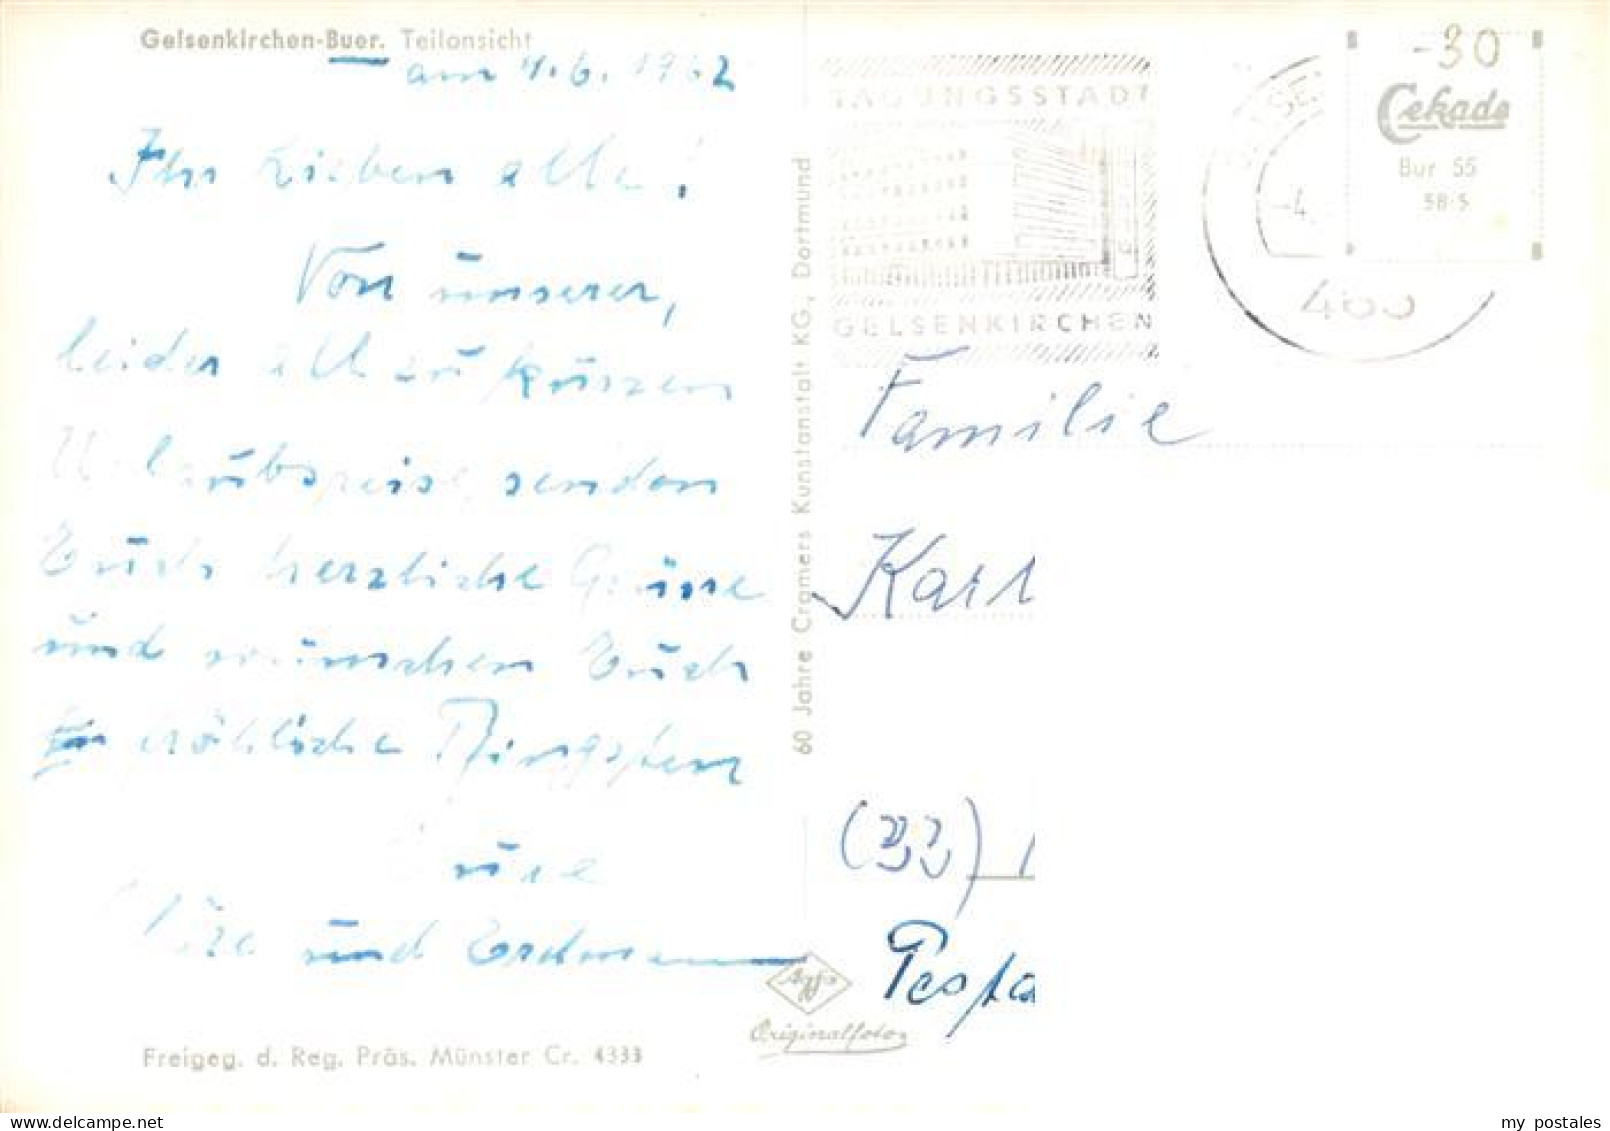 Gelsenkirchen-Buer. Teilansicht
am 4.6.1962
Ihr Lieben alle!
Von unserer,
leider all zu kurzen
Urlaubsreise senden
Euch herzliche Grüsse
und wünschen Euch
fröhliche Pfingsten
Eure
und Erdmann
Freigeg. d. Reg. Präs. Münster Cr. 4333
60 Jahre Cramers Kunstanstalt KG., Dortmund
Agfa
Originalfoto
TAGUNGSSTADT
GELSENKIRCHEN
-4.
465
-30
Cekade
Bur 55
58·5
Familie
Karl
(22)
my postales